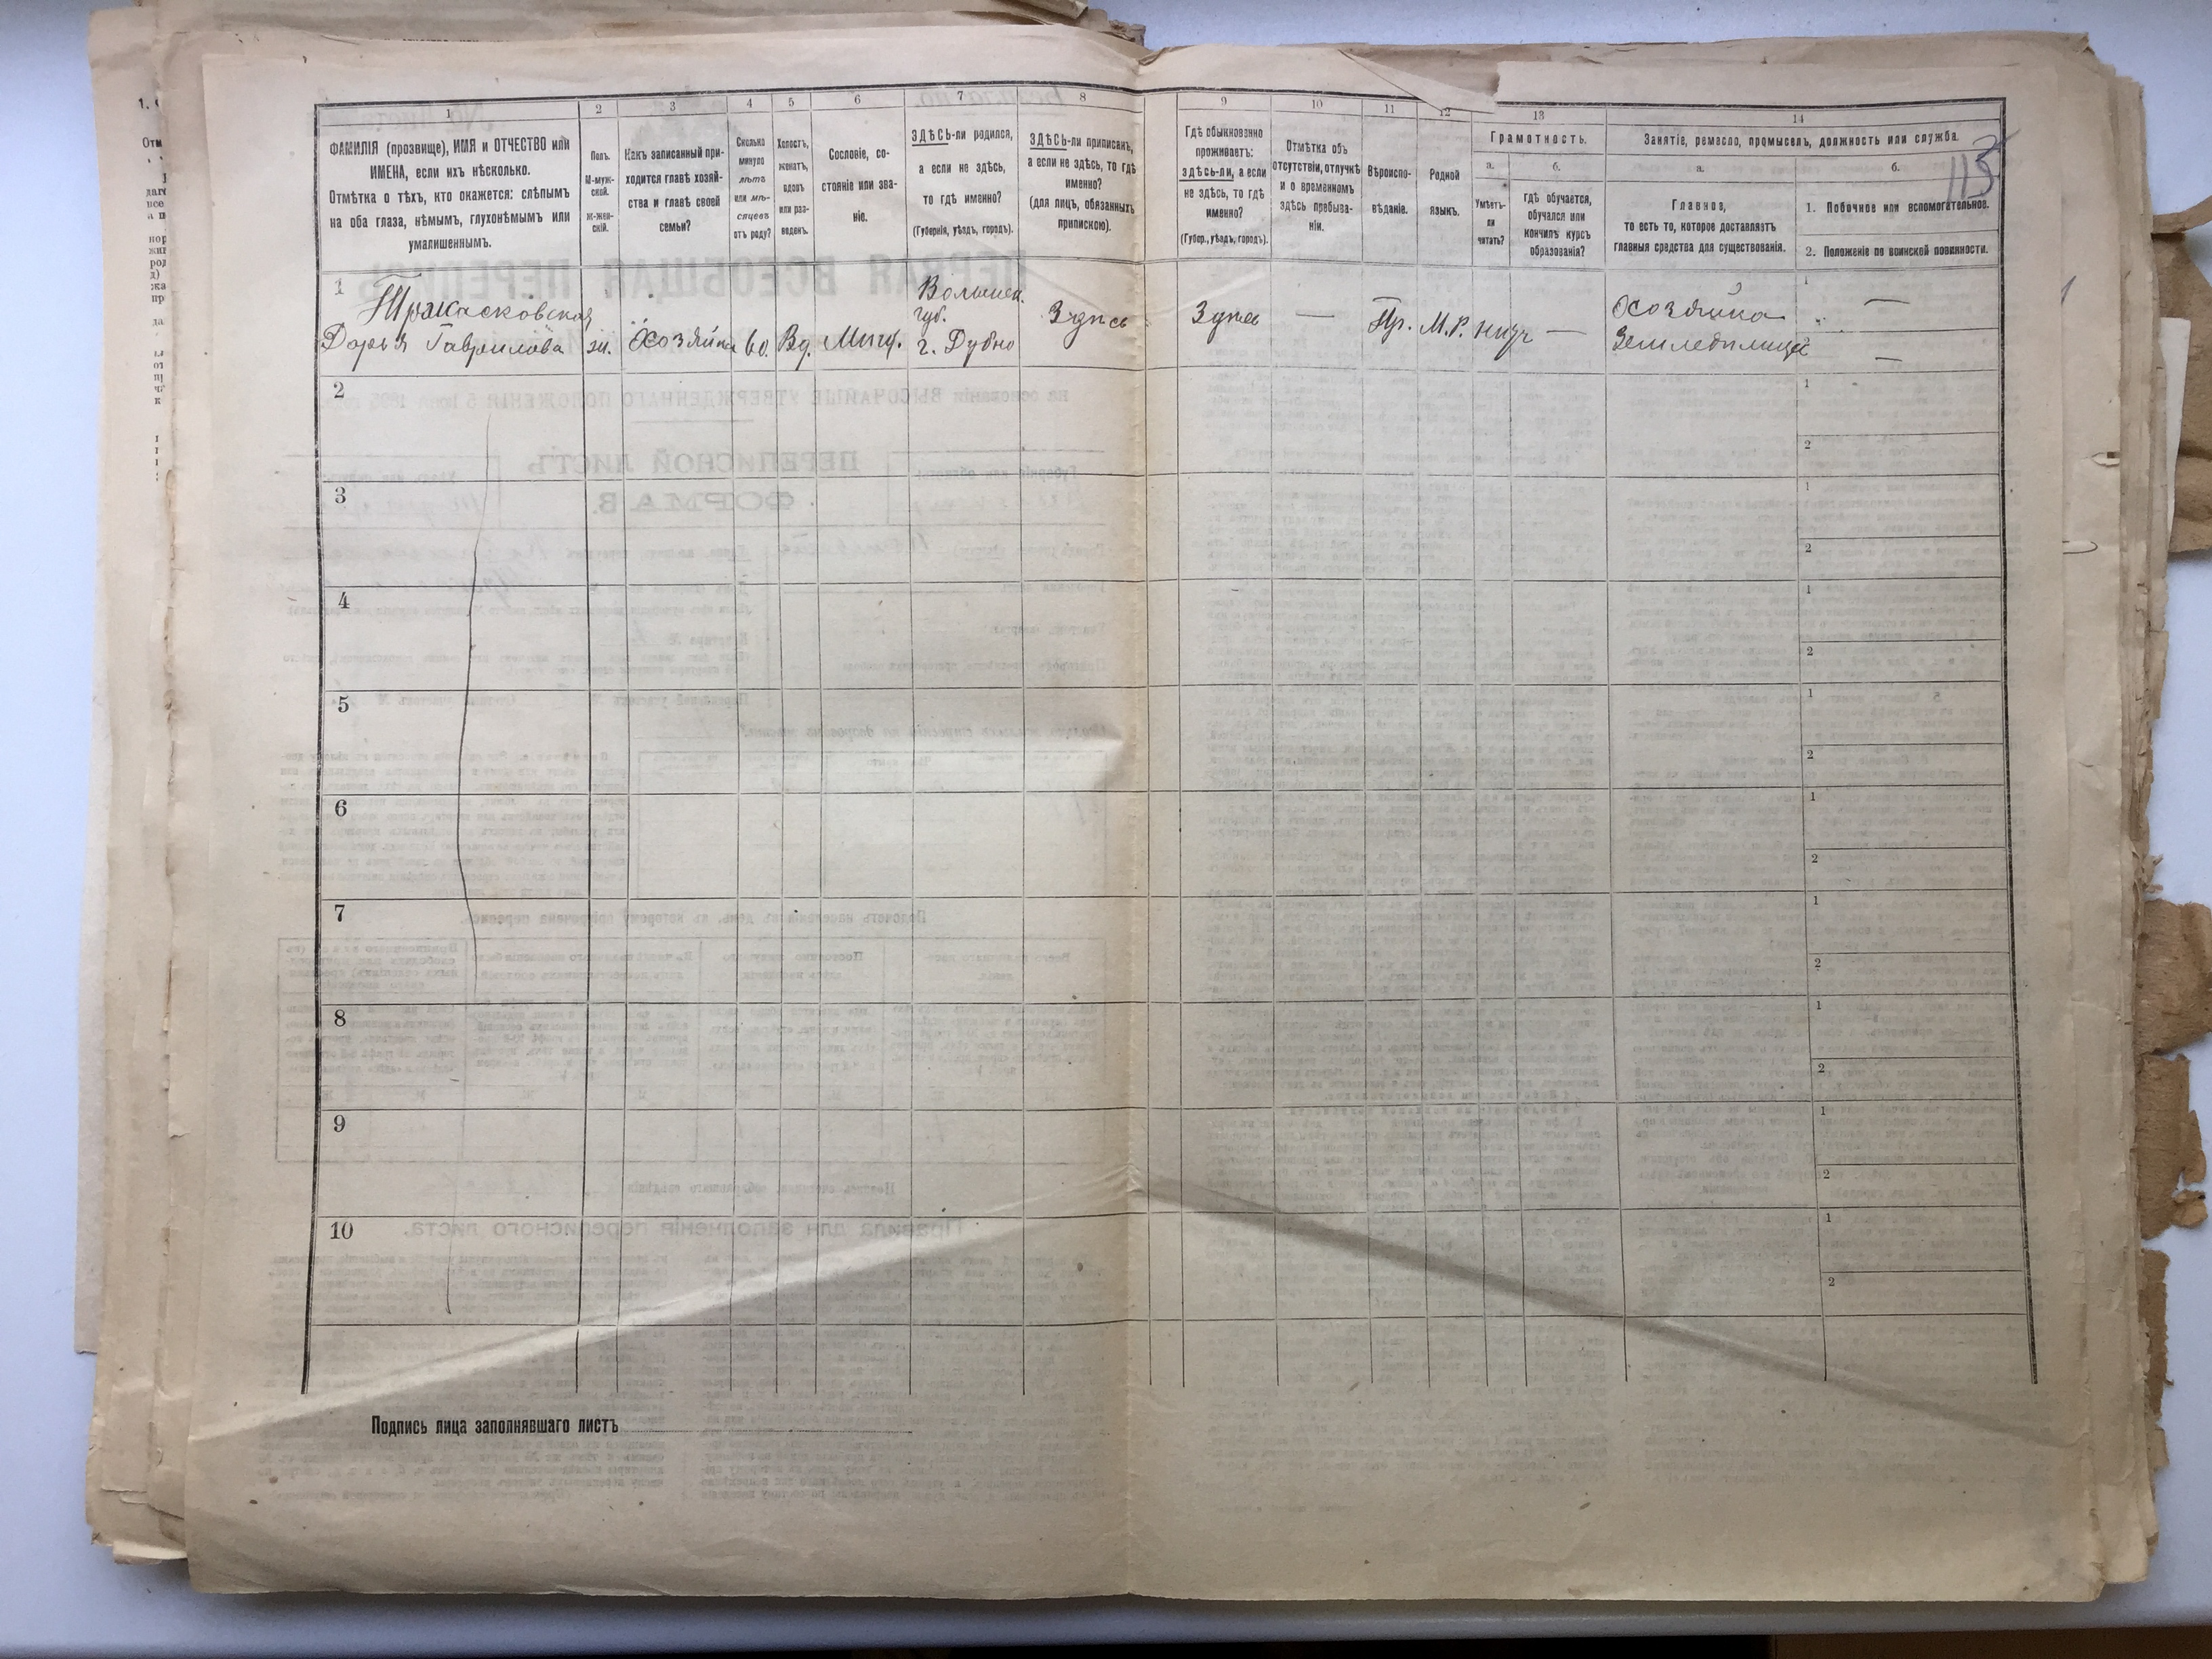 1
2
3
4
5
6
7
8
9
10
11
12
13
14
ФАМИЛІЯ (прозвище), ИМЯ и ОТЧЕСТВО или
ИМЕНА, если ихъ нѣсколько.
Отмѣтка о тѣхъ, кто окажется: слѣпымъ
на оба глаза, нѣмымъ, глухонѣмымъ или
умалишеннымъ.
Полъ.
М-муж-
ской.
Ж-жен-
скій.
Какъ записанный при-
ходится главѣ хозяй-
ства и главѣ своей
семьи?
Сколько
минуло
лѣтъ
или мѣ-
сяцевъ
отъ роду?
Холостъ,
женатъ,
вдовъ
или раз-
веденъ.
Сословіе, со-
стояніе или зва-
ніе.
ЗДѢСЬ-ли родился,
а если не здѣсь,
то гдѣ именно?
(Губернія, уѣздъ, городъ).
ЗДѢСЬ-ли приписанъ,
а если не здѣсь, то гдѣ
именно?
(для лицъ, обязанныхъ
припискою).
Гдѣ обыкновенно
проживаетъ:
здѣсь-ли, а если
не здѣсь, то гдѣ
именно?
(Губер., уѣздъ, городъ).
Отмѣтка объ
отсутствіи, отлучкѣ
и о временномъ
здѣсь пребыва-
ніи.
Вѣроиспо-
вѣданіе.
Родной
языкъ.
Грамотность.
а.
Умѣетъ-
ли
читать?
б.
Гдѣ обучается,
обучался или
кончилъ курсъ
образованія?
Занятіе, ремесло, промыселъ, должность или служба.
113
а.
Главное,
то есть то, которое доставляетъ
главныя средства для существованія.
б.
1. Побочное или вспомогательное.
2. Положеніе по воинской повинности.
1
Дарья Гаврилова
ж.
Хозяйка
60.
Вд.
Мѣщ.
Волынск.
губ.
г. Дубно
Здѣсь
Здѣсь
—
Пр.
М.Р.
—
Хозяйка
Земледѣлица
1
—
—
2
1
2
3
1
2
4
1
2
5
1
2
6
1
2
7
1
2
8
1
2
9
1
2
10
1
2
Подпись лица заполнявшаго листъ